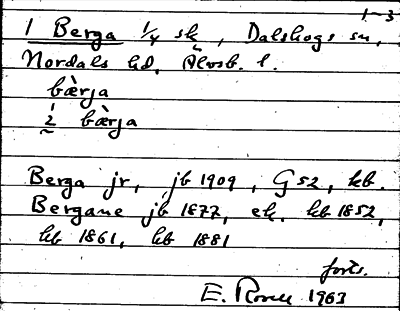 1-3
1 Berga 1/4 sk, Dalskogs sn,
Nordals hd, Älvsb. l.
bæ̀rja
2 bæ̀rja
Berga jr, jb 1909, G52, kb.
Bergane jb 1877, ek. kb 1852,
kb 1861, kb 1881
forts.
E. 1963